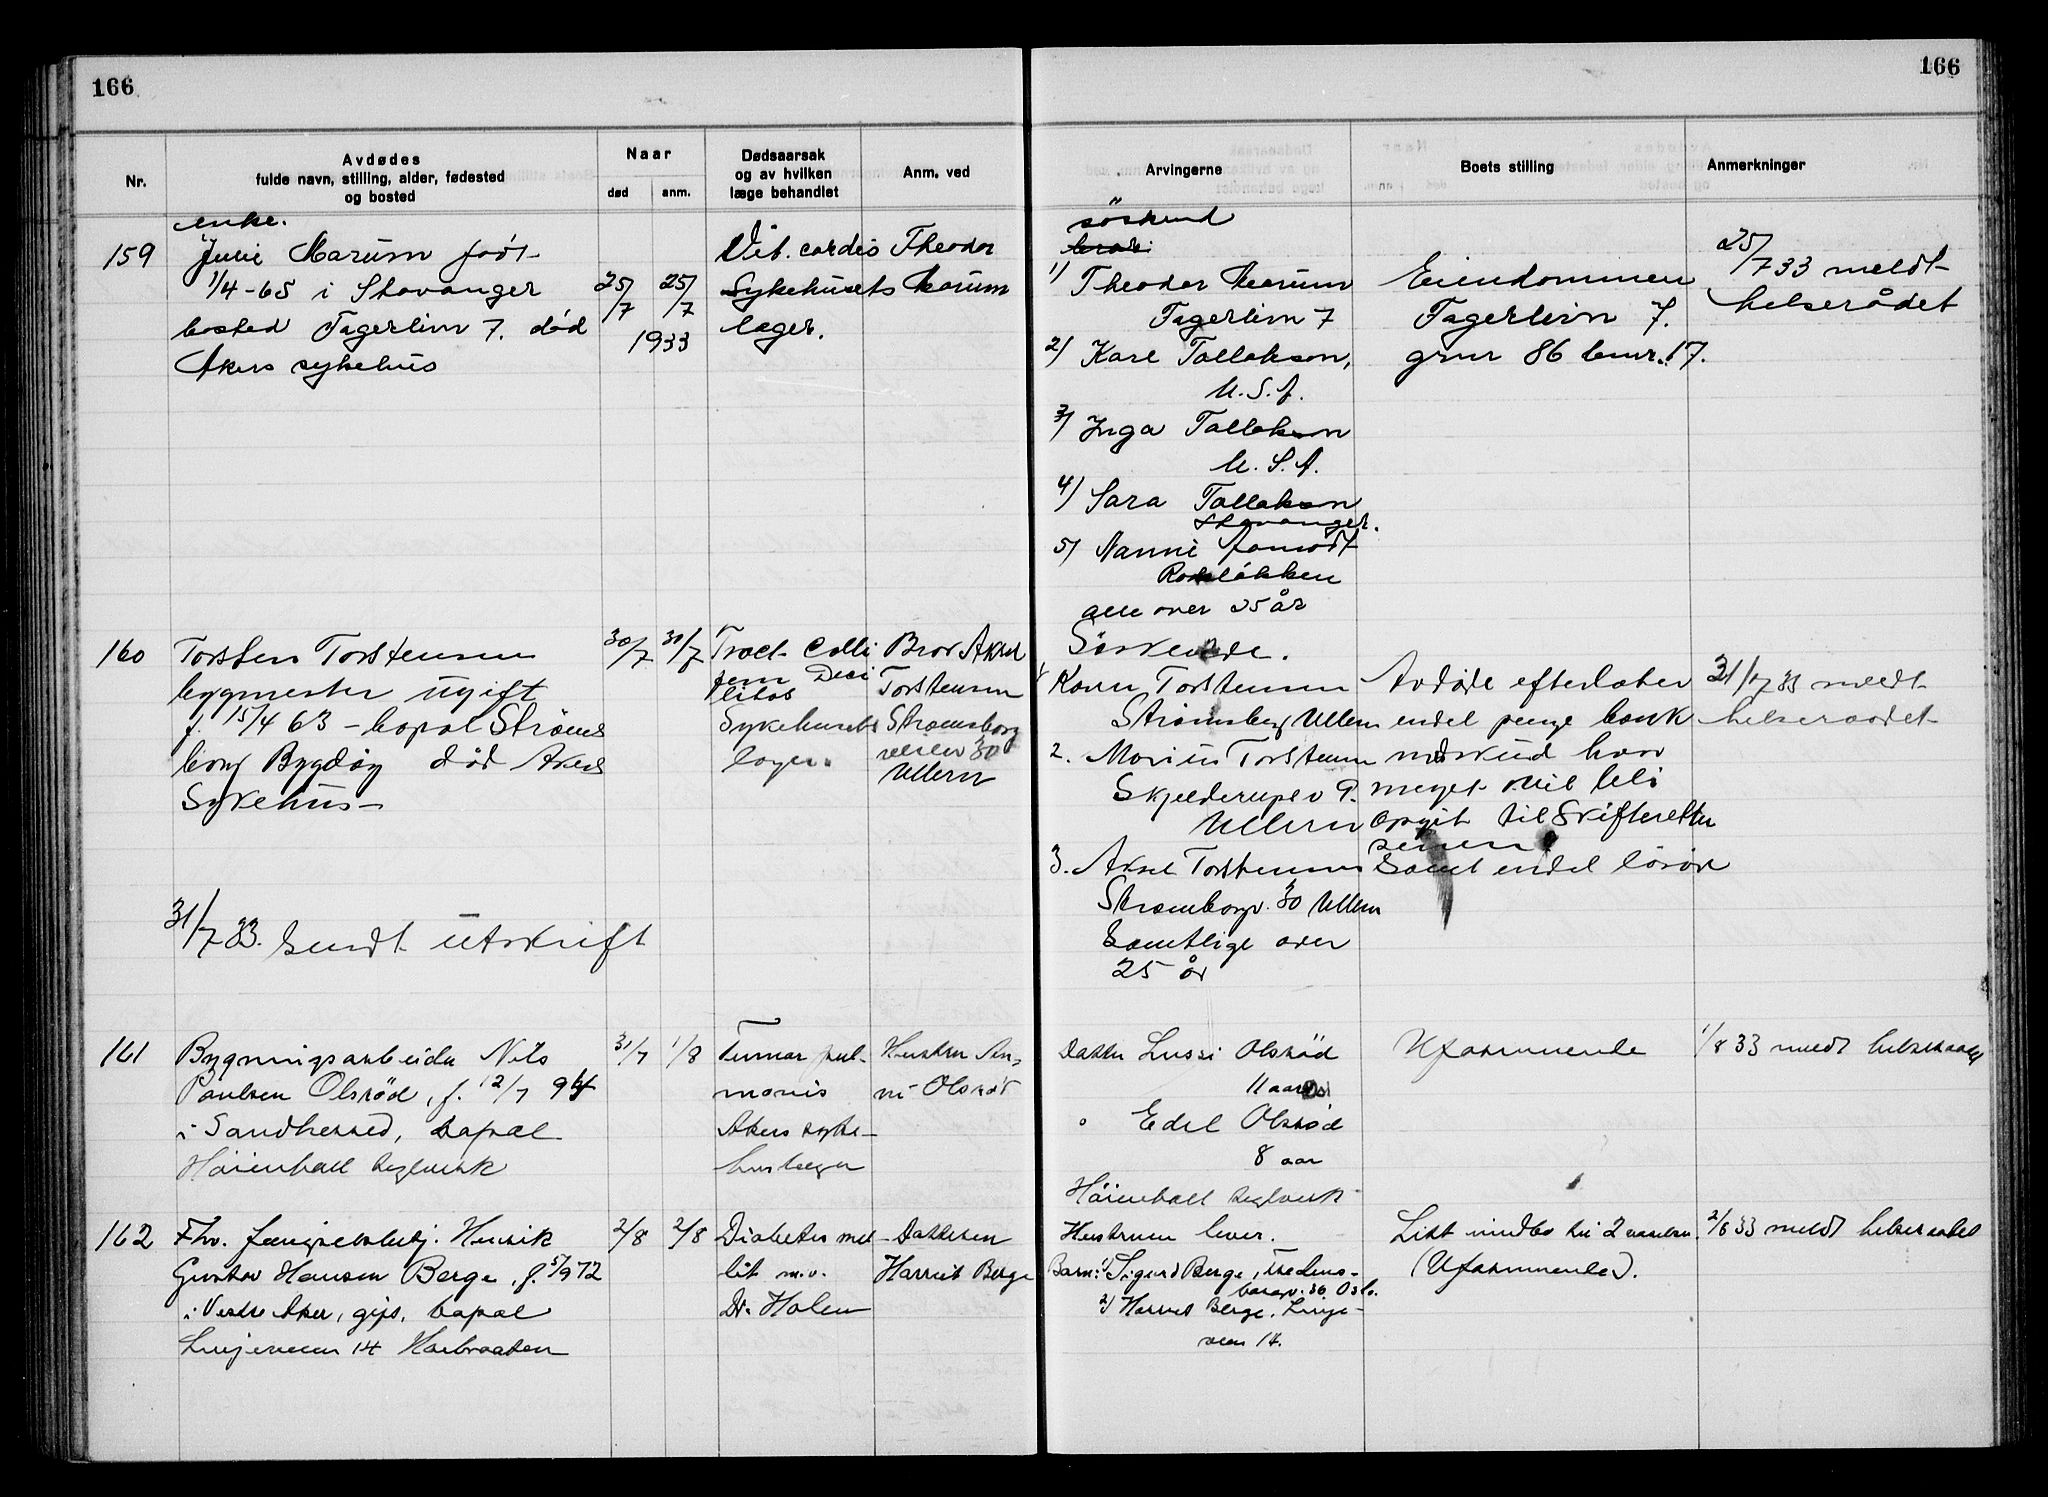 166
166
Nr.
Avdødes
fulde navn, stilling, alder, fødested
og bosted
Naar
død
anm.
Dødsaarsak
og av hvilken
læge behandlet
Anm. ved
Arvingerne
Boets stilling
Anmerkninger
159
enke.
Julie Marum født
1/4-65 i Stavanger
bosted Fagerlivn 7. død
Akers sykehus
25/7
25/7
1933
Vit. cordis
Sykehusets
læger.
Theodor
Marum
søskend
1) Theodor Marum
Fagerlivn 7
2) Karl Tollakson,
U.S.A.
3) Inga Tollakson
U.S.A.
4) Sara Tollakson
Stavanger.
5) Nanni
Rodeløkken
alle over 25 år
Eiendommen
Fagerlivn 7.
gnr 86 bnr. 17.
25/7 33 meldt
helserådet
160
Torsten Torstensen
bygmester ugift
f. 15/4 63 – bopal Strøms
borg Bygdøy død Akers
Sykehus
31/7 33. Sendt utskrift
30/7
30/7
Fract. Colli
fem Deci
litos
Sykehusets
læger.
Bror Aksel
Torstensen
Strømsborg
veien 30
Ullern
Søskende.
1 Karen Torstensen
Strømsborg Ullern
2. Marius Torstensen
Skjelderups v 9.
Ullern
3. Aksel Torstensen
Strømborgv. 30 Ullern
Samtlige over
25 år
Avdøde efterlater
endel penge bank
innskud hvor
meget vil bli
opgit til Skifteretten
senere
Samt endel løsøre
31/7 33 meldt
helseraadet
161
Bygningsarbeider Nils
Paulsen Olsrød, f. 12/7 94
i Sandherred, bopæl
Høienhall teglverk
31/7
1/8
Tumor pul-
monis
Akers syke-
huslæger
Hustru An-
ni Olsrød
Datter Lussi Olsrød
11 aar
" Edel Olsrød
8 aar
Høienhall teglverk
Uformuende
1/8 33 meldt helseraadet
162
Fhv. fængselsbetj. Henrik
Gustav Hansen Berge, f. 5/9 72
i Vestre Aker, gift, bopæl
Linjeveien 14 Haebraaten
2/8
2/8
Diabetes mel-
lit m.v.
Dr. Holen
Datteren
Harriet Berge
Hustruen lever.
Barn: 1) Sigurd Berge, Fredens-
borgv. 36 Oslo.
2) Harriet Berge. Linje-
veien 14.
Litt indbo til 2 værelser.
(Uformuende).
2/8 33 meldt helseraadet